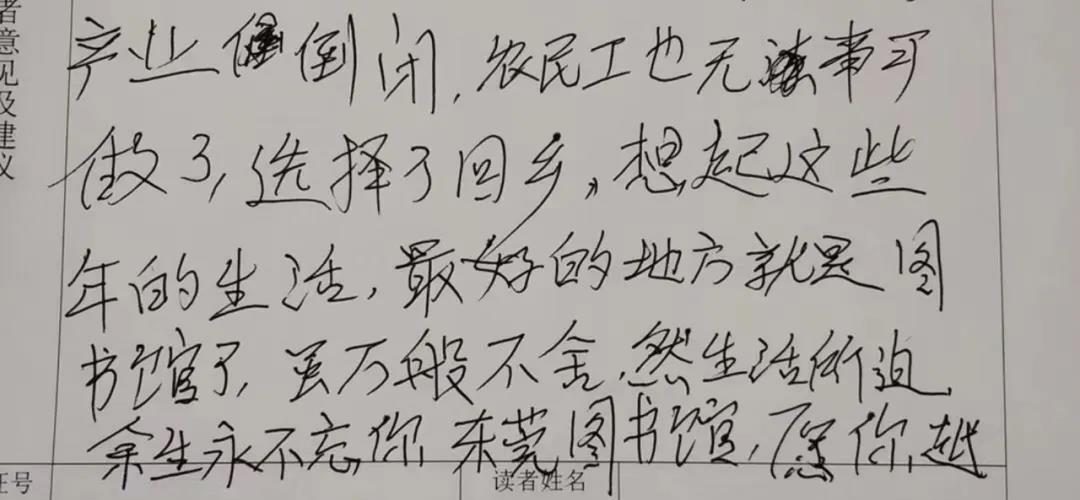 者意见及建议
产业倒闭,农民工也无事可
做了,选择了回乡,想起这些
年的生活,最好的地方就是图
书馆了,虽万般不舍,然生活所迫,
余生永不忘你,东莞图书馆,愿你越
证号
读者姓名